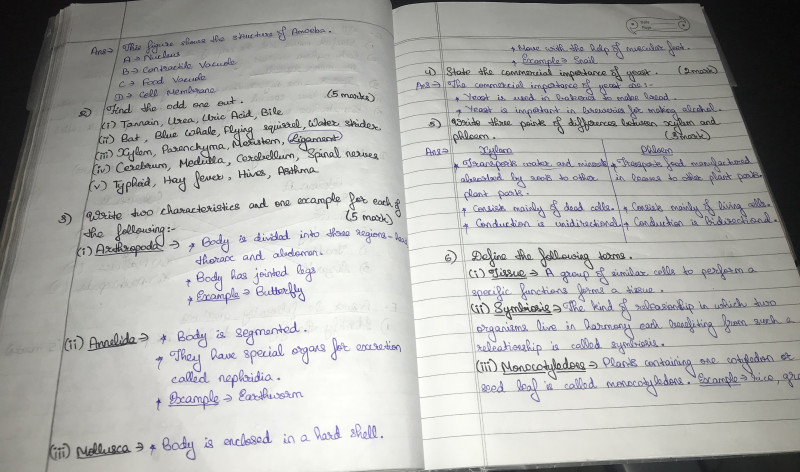 Ans→ This figure shows the structure of Amoeba.
A → Nucleus
B → Contractile Vacuole
C → Food Vacuole
D → Cell Membrane
2) Find the odd one out. (5 marks)
(i) Tannin, Urea, Uric Acid, Bile
(ii) Bat, Blue Whale, Flying squirrel, Water strider
(iii) Xylem, Parenchyma, Meristem, Ligament
(iv) Cerebrum, Medulla, Cerebellum, Spinal nerves
(v) Typhoid, Hay fever, Hives, Asthma
3) Write two characteristics and one example for each of
the following:- (5 mark)
(i) Arthropoda → * Body is divided into three regions - head
thorax and abdomen.
* Body has jointed legs
* Example → Butterfly
(ii) Annelida → * Body is segmented.
* They have special organs for excretion
called nephridia.
* Example → Earthworm
(iii) Mollusca → * Body is enclosed in a hard shell.
* Move with the help of muscular foot.
* Example → Snail
4) State the commercial importance of yeast. (2 mark)
Ans → The commercial importance of yeast are:-
* Yeast is used in bakeries to make bread.
* Yeast is important in breweries for making alcohol.
5) Write three points of differences between xylem and
phloem. (3 mark)
Ans→ Xylem
* Transports water and minerals
absorbed by roots to other
plant parts.
* Consists mainly of dead cells.
* Conduction is unidirectional.
Phloem
* Transports food manufactured
in leaves to other plant parts.
* Consists mainly of living cells.
* Conduction is bidirectional.
6) Define the following terms.
(i) Tissue → A group of similar cells to perform a
specific functions forms a tissue.
(ii) Symbiosis → The kind of releasionship in which two
organisms live in harmony each benefiting from such a
releationship is called symbiosis.
(iii) Monocotyledons → Plants containing one cotyledon or
seed leaf is called monocotyledons. Example → rice,